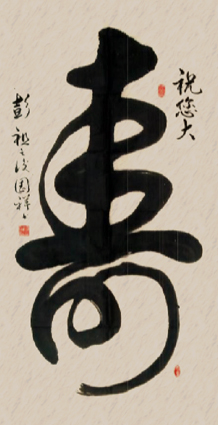 祝您大
寿
彭祖之後園祥